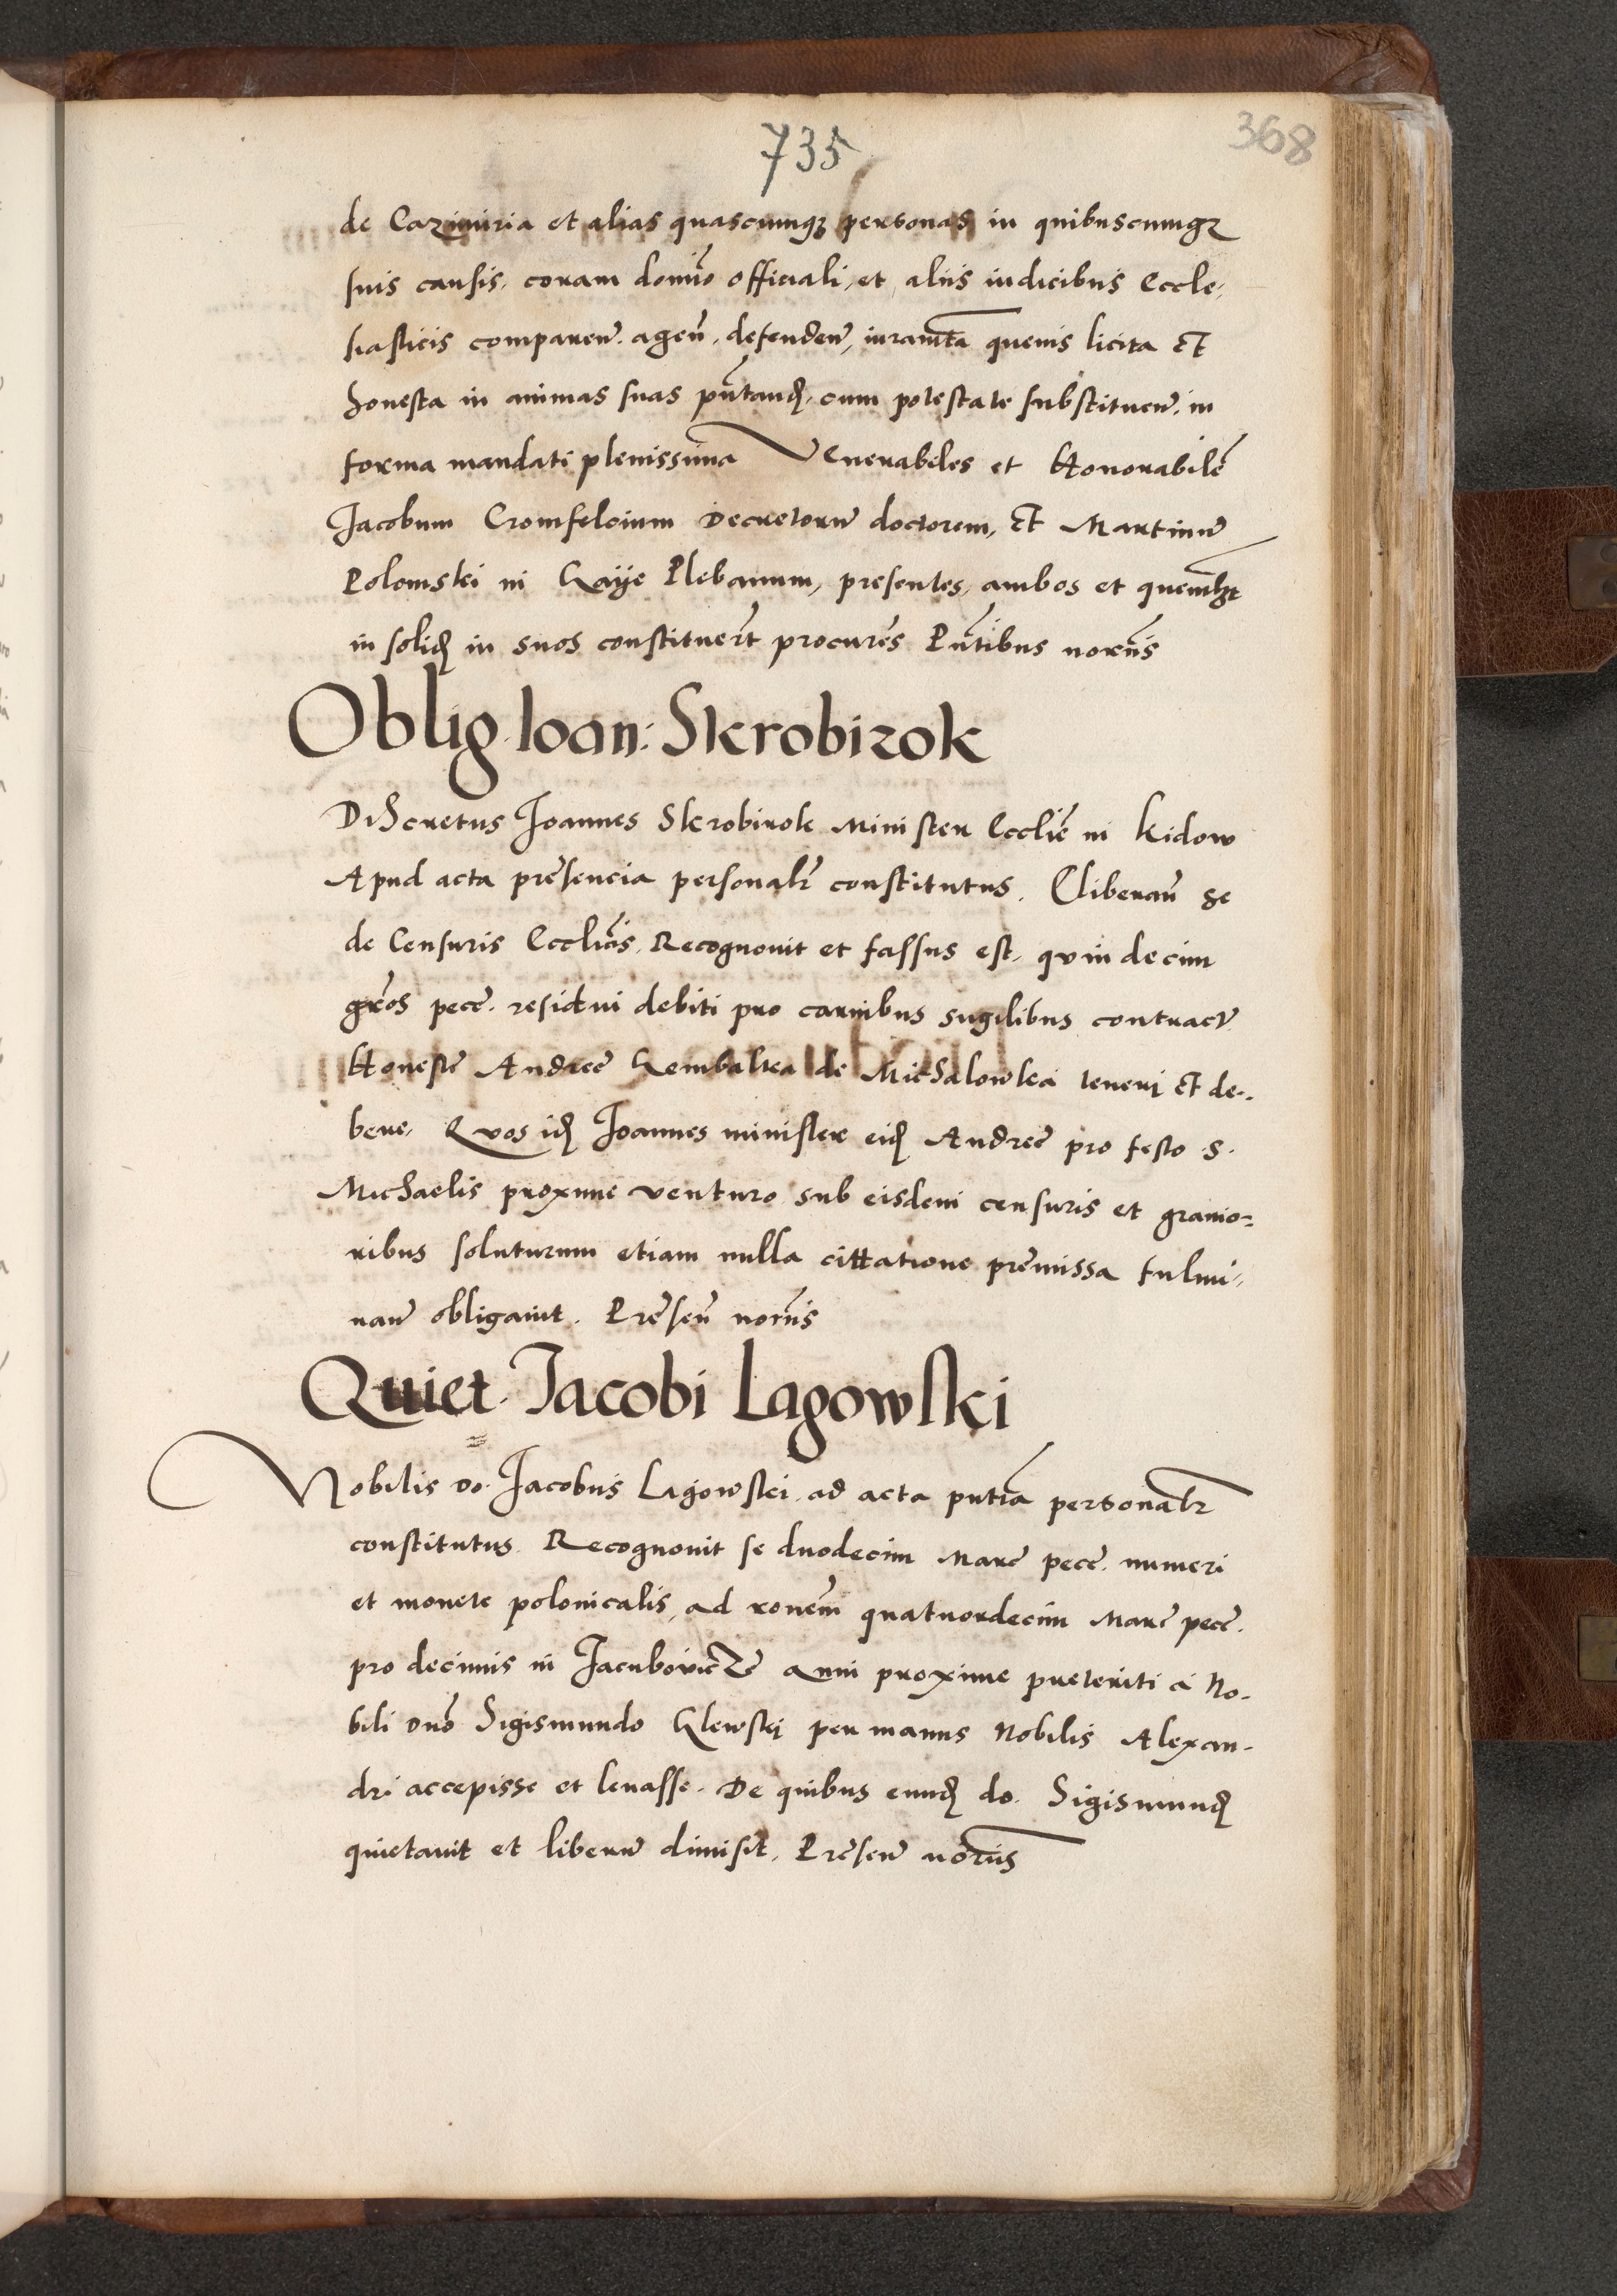 735
368
de Cazimiria et alias quascunqꝫ personas in quibuscunqꝫ
suis causis, coram domīo officiali, et aliis iudicibus Eccle,
siasticis comparen̄. agen̄, defenden̄, iuramēta quevis licita et
honesta in animas suas pn̄tand̨, cum potestate substituen̄, in
forma mandati plenissima Venerabiles et Honorabilē
Jacobum Cromfelcium Decretorū doctorem, et Martinū
Polomski in Plebanum, presentes, ambos et quemlꝫt
in solid̨ in suos constituerūt procurēs Pn̄tibus norīis
Oblig. Ioan: Skrobirok
Discretus Joannes Skrobirok Minister Eccliē in Kidow
Apud acta prēsencia personalr̄ constitutus. Cliberan̄ se
de Censuris Eccliōs. Recognovit et fassus est, quindecim
grōs pecē. residui debiti pro carnibus sugilibus contract̄
Honestē Andreē de Michalowka teneri et de-
bere, Quos id̨ Joannes minister eid̨ Andreē pro festo .S.
Michaelis proxime venturo sub eisdem censuris et gravio=
ribus soluturum etiam nulla cittatione prēmissa fulmi,
nan̄ obligavit. Prēsen̄ norīis
Quiet. Jacobi Lagowski
Nobilis do. Jacobus Lagowski ad acta pn̄tia personalr̄
constitutus. Recognovit se duodecim Marē pecē. numeri
et monete polonicalis, ad ronēm quatuordecim Marē pecē.
pro decimis in Jacubowicze anni proxime preteriti a No-
bili dnō Sigismundo Glewski per manus Nobilis Alexan-
dri accepisse et levasse. De quibus eund̨ do. Sigismund̨
quietavit et liberū dimisit. Prēsen̄ norīis